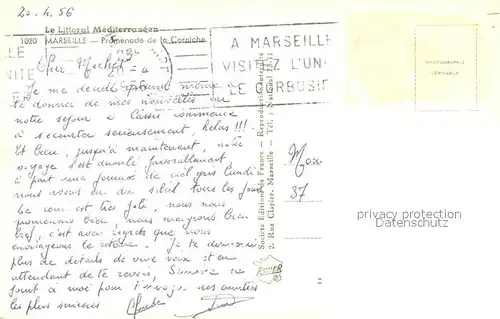 20.4.56
Le Littoral Méditerranéen
1020 MARSEILLE — Promenade de la Corniche
A MARSEILLE
VISITEZ L'UN
LE CORBUSI
Cher Michel
Je me décide quand même à
te donner de mes nouvelles car
notre séjour à Cassis commence
à s'écourter sérieusement, hélas !!!
Et bien, jusqu'à maintenant, notre
voyage s'est déroulé favorablement,
à part une journée de ciel gris lundi
nous avons eu du soleil tous les jours
Le coin est très joli, nous nous
promenons bien, nous mangeons bien
bref, c'est avec regrets que nous
envisageons le retour. Je te donnerai
plus de détails de vive voix et en
attendant de te revoir, se
joint à moi pour t'envoyer nos amitiés
les plus sincères
Société Editions de France — Reproduction interdite
2, Rue Clapier, Marseille — Tél. : National
Mon
37
PHOTOGRAPHIE
VÉRITABLE
privacy protection
Datenschutz